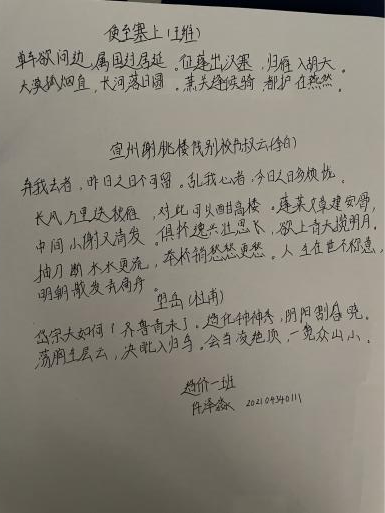 使至塞上(王维)
单车欲问边,属国过居延。征蓬出汉塞,归雁入胡天。
大漠孤烟直,长河落日圆。萧关逢候骑,都护在燕然。
宣州谢朓楼饯别校书叔云(李白)
弃我去者,昨日之日不可留。乱我心者,今日之日多烦忧。
长风万里送秋雁,对此可以酣高楼。蓬莱文章建安骨,
中间小谢又清发。俱怀逸兴壮思飞,欲上青天揽明月。
抽刀断水水更流,举杯销愁愁更愁。人生在世不称意,
明朝散发弄扁舟。
望岳(杜甫)
岱宗夫如何?齐鲁青未了。造化钟神秀,阴阳割昏晓。
荡胸生层云,决眦入归鸟。会当凌绝顶,一览众山小。
造价一班
陈泽淼 202104340111